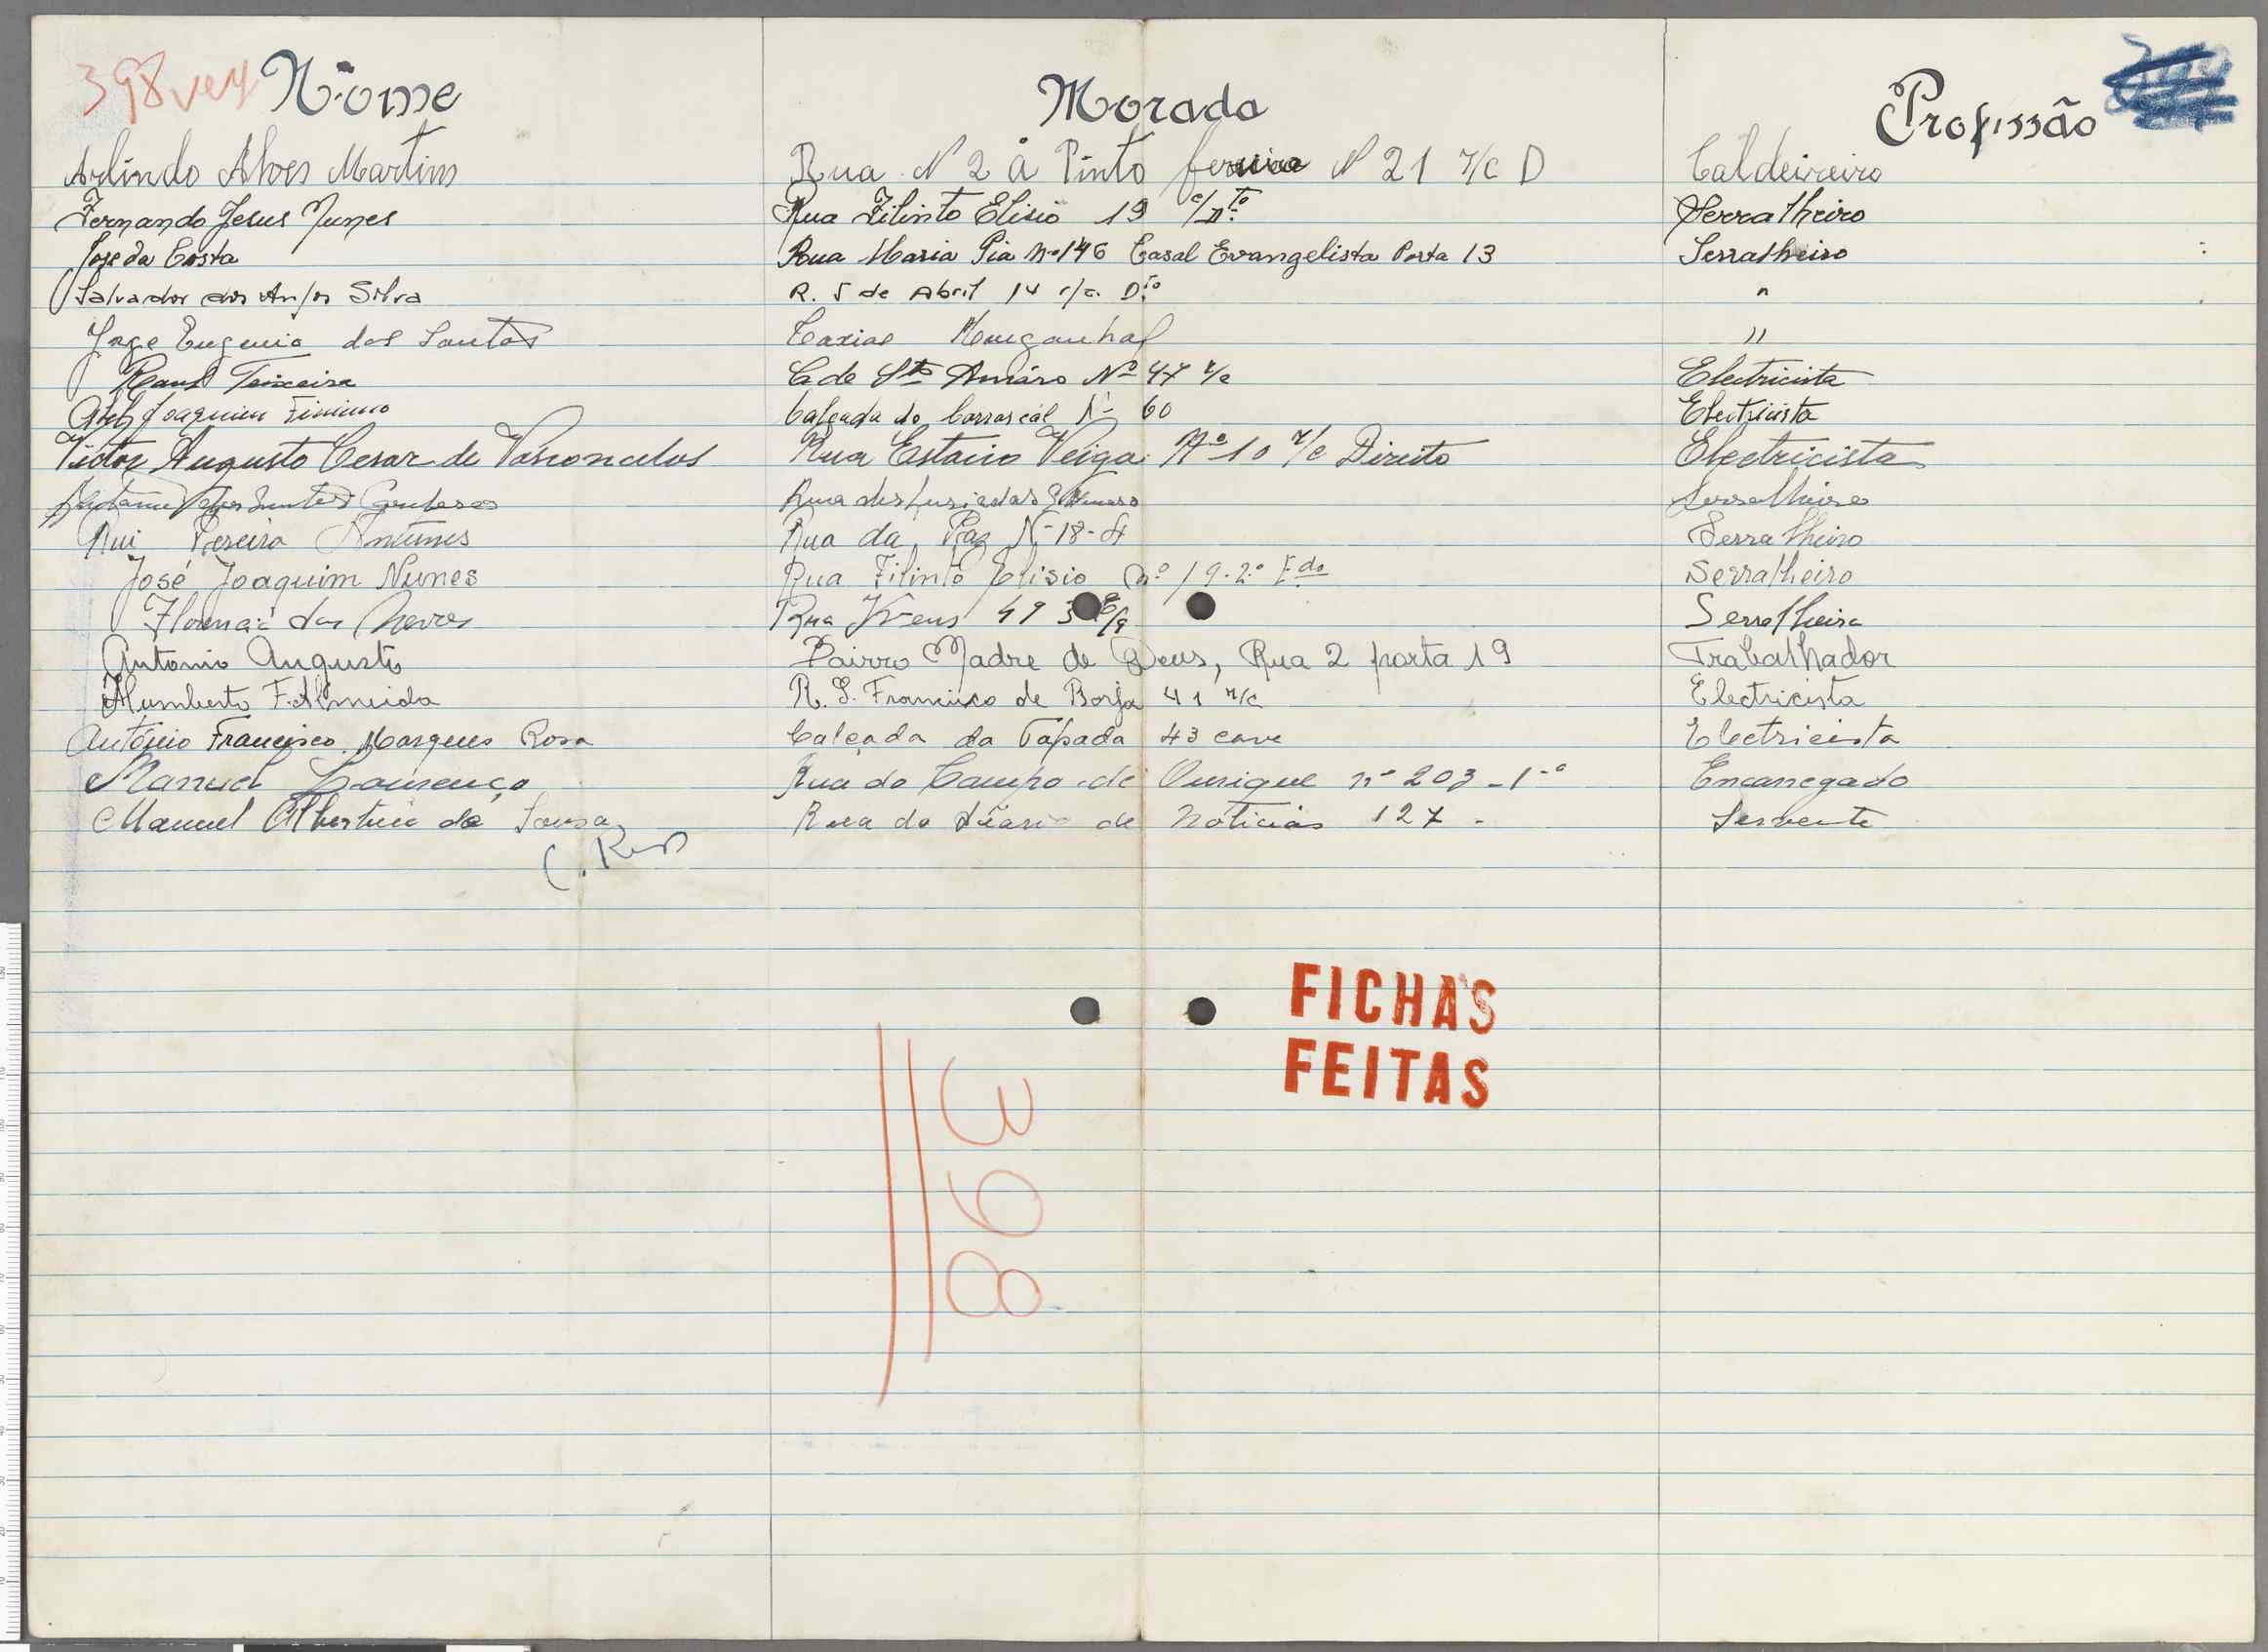 398 ver Nome Morada Profissão
Arlindo Alves Martins Rua N 2 Á Pinto ferreira N 21 r/c D Caldeireiro
Fernando Jesus Nunes Rua Filinto Elisio 19 c/ Dto Serralheiro
José da Costa Rua Maria Pia nº 146 Casal Evangelista Porta 13 Serralheiro
Salvador dos Anjos Silva R. 5 de Abril 14 r/c. Dto "
Jorge Eugenio dos Santos Caxias Murganhal "
Raul Teixeira C. de Sto Amáro Nº 47 r/c Electricista
Joaquim Calçada do Carrascal Nº 60 Electricista
Victor Augusto Cesar de Vasconcelos Rua Estacio Veiga Nº 10 r/c Direito Electricista
Rua dos Lusiadas Serralheiro
Rui Pereira Antunes Rua da Paz Nº 18-4 Serralheiro
José Joaquim Nunes Rua Filinto Elisio nº 19-2º Edo Serralheiro
das Neves Rua 49 3 Serralheiro
Antonio Augusto Bairro Madre de Deus, Rua 2 porta 19 Trabalhador
Humberto F. Almeida R. S. Francisco de Borja 41 r/c Electricista
António Francisco Marques Rosa Calçada da Tapada 43 cave Electricista
Manuel Lourenço Rua do Campo de Ourique nº 203-1º Encarregado
Manuel Albertino de Sousa Rua do Diario de Noticias 127 - Servente
FICHAS
FEITAS
398